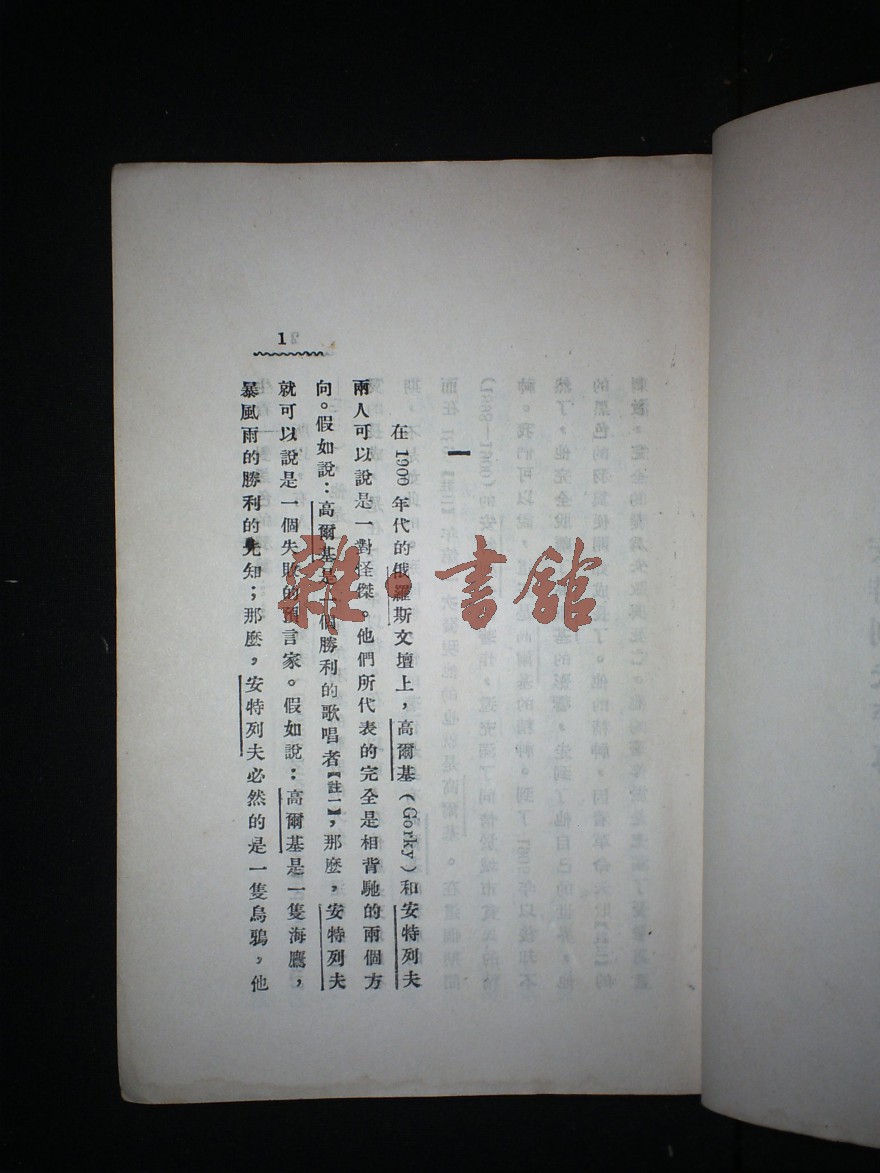 1
一
在1900年代的俄羅斯文壇上，高爾基（Gorky）和安特列夫
兩人可以說是一對怪傑。他們所代表的完全是相背馳的兩個方
向。假如說：高爾基是一個勝利的歌唱者【註一】，那麽，安特列夫
就可以說是一個失敗的預言家。假如說：高爾基是一隻海鷹，
暴風雨的勝利的先知；那麽，安特列夫必然的是一隻烏鴉，他
雜·書館